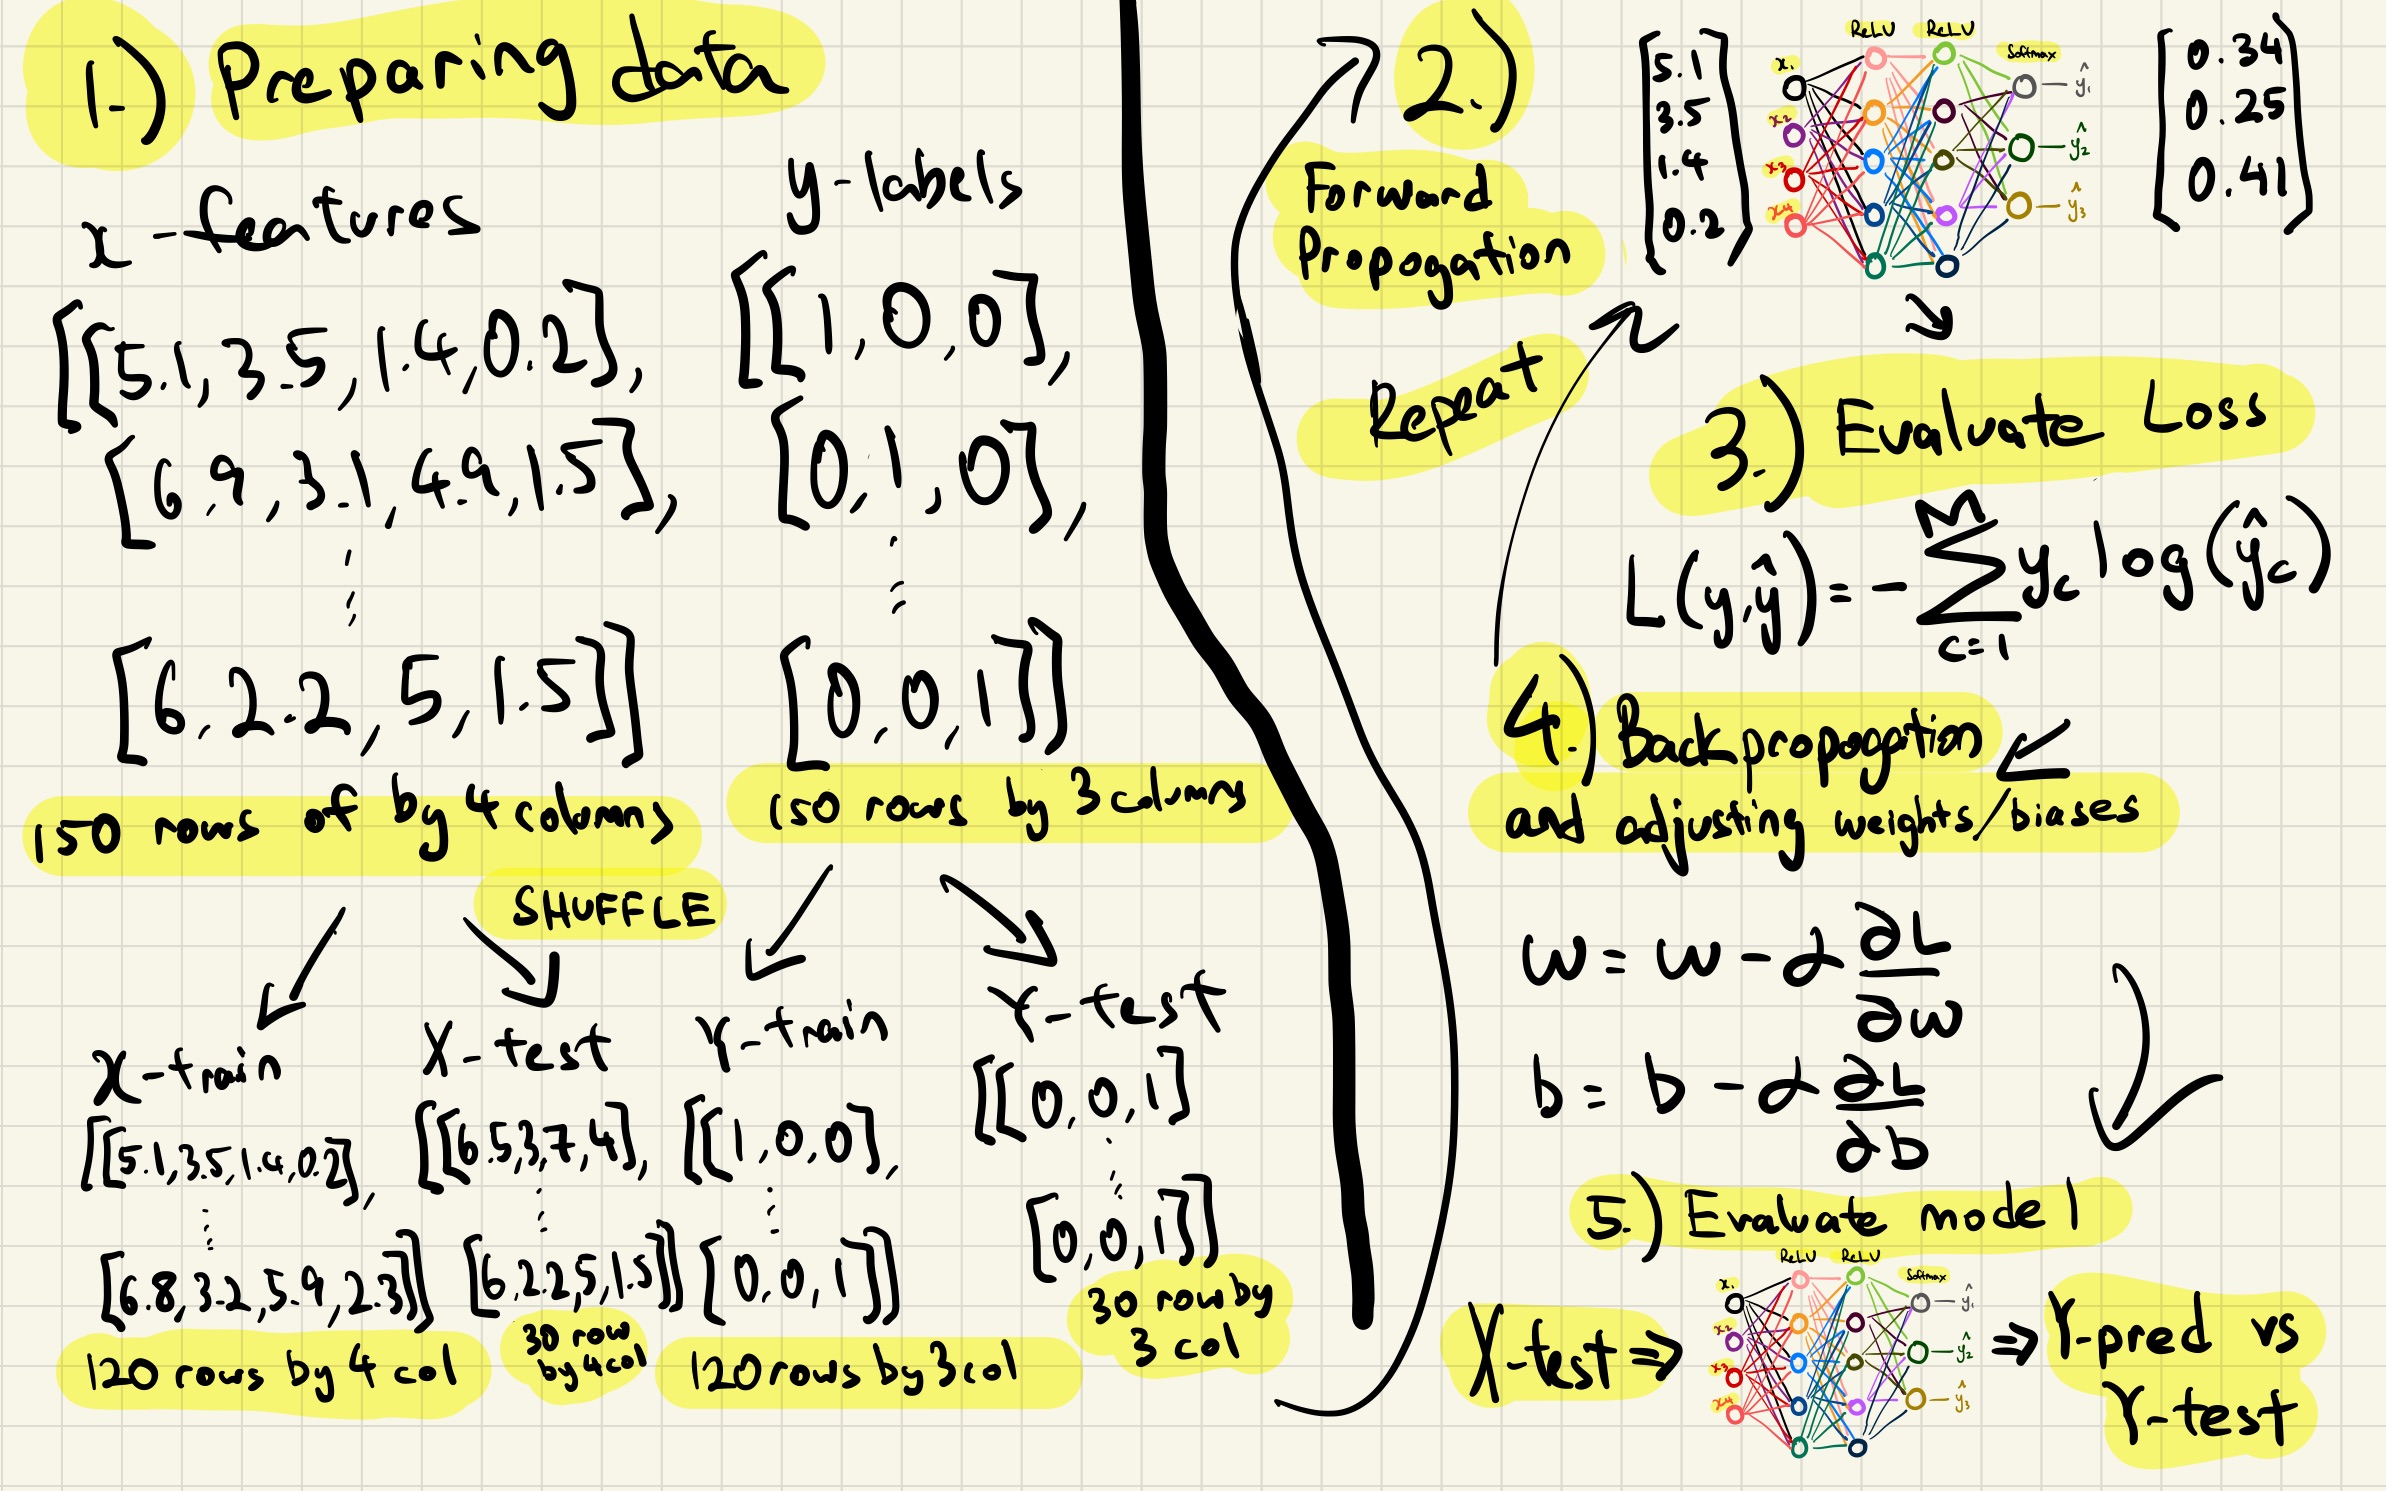 1.) Preparing data
x-features
y-labels
[[5.1, 3.5, 1.4, 0.2],
[6.9, 3.1, 4.9, 1.5],
[6, 2.2, 5, 1.5]]
[[1, 0, 0],
[0, 1, 0],
[0, 0, 1]]
150 rows of by 4 columns
150 rows by 3 columns
SHUFFLE
X-train
[[5.1, 3.5, 1.4, 0.2],
[6.8, 3.2, 5.9, 2.3]]
120 rows by 4 col
X-test
[[6.5, 3, 7, 4],
[6, 2.2, 5, 1.5]]
30 row
by 4 col
Y-train
[[1, 0, 0],
[0, 0, 1]]
120 rows by 3 col
Y-test
[[0, 0, 1]
[0, 0, 1]]
30 row by
3 col
2.)
Forward
Propogation
[5.1
3.5
1.4
0.2]
ReLU ReLU
Softmax
x1
x2
x3
x4
ŷ1
ŷ2
ŷ3
[0.34
0.25
0.41]
Repeat
3.) Evaluate Loss
L(y,ŷ) = - M∑c=1 yc log(ŷc)
4.) Backpropogation
and adjusting weights/biases
w = w - α ∂L/∂w
b = b - α ∂L/∂b
5.) Evaluate model
X-test ⇒
ReLU ReLU
Softmax
x1
x2
x3
x4
ŷ1
ŷ2
ŷ3
⇒ Y-pred vs
Y-test